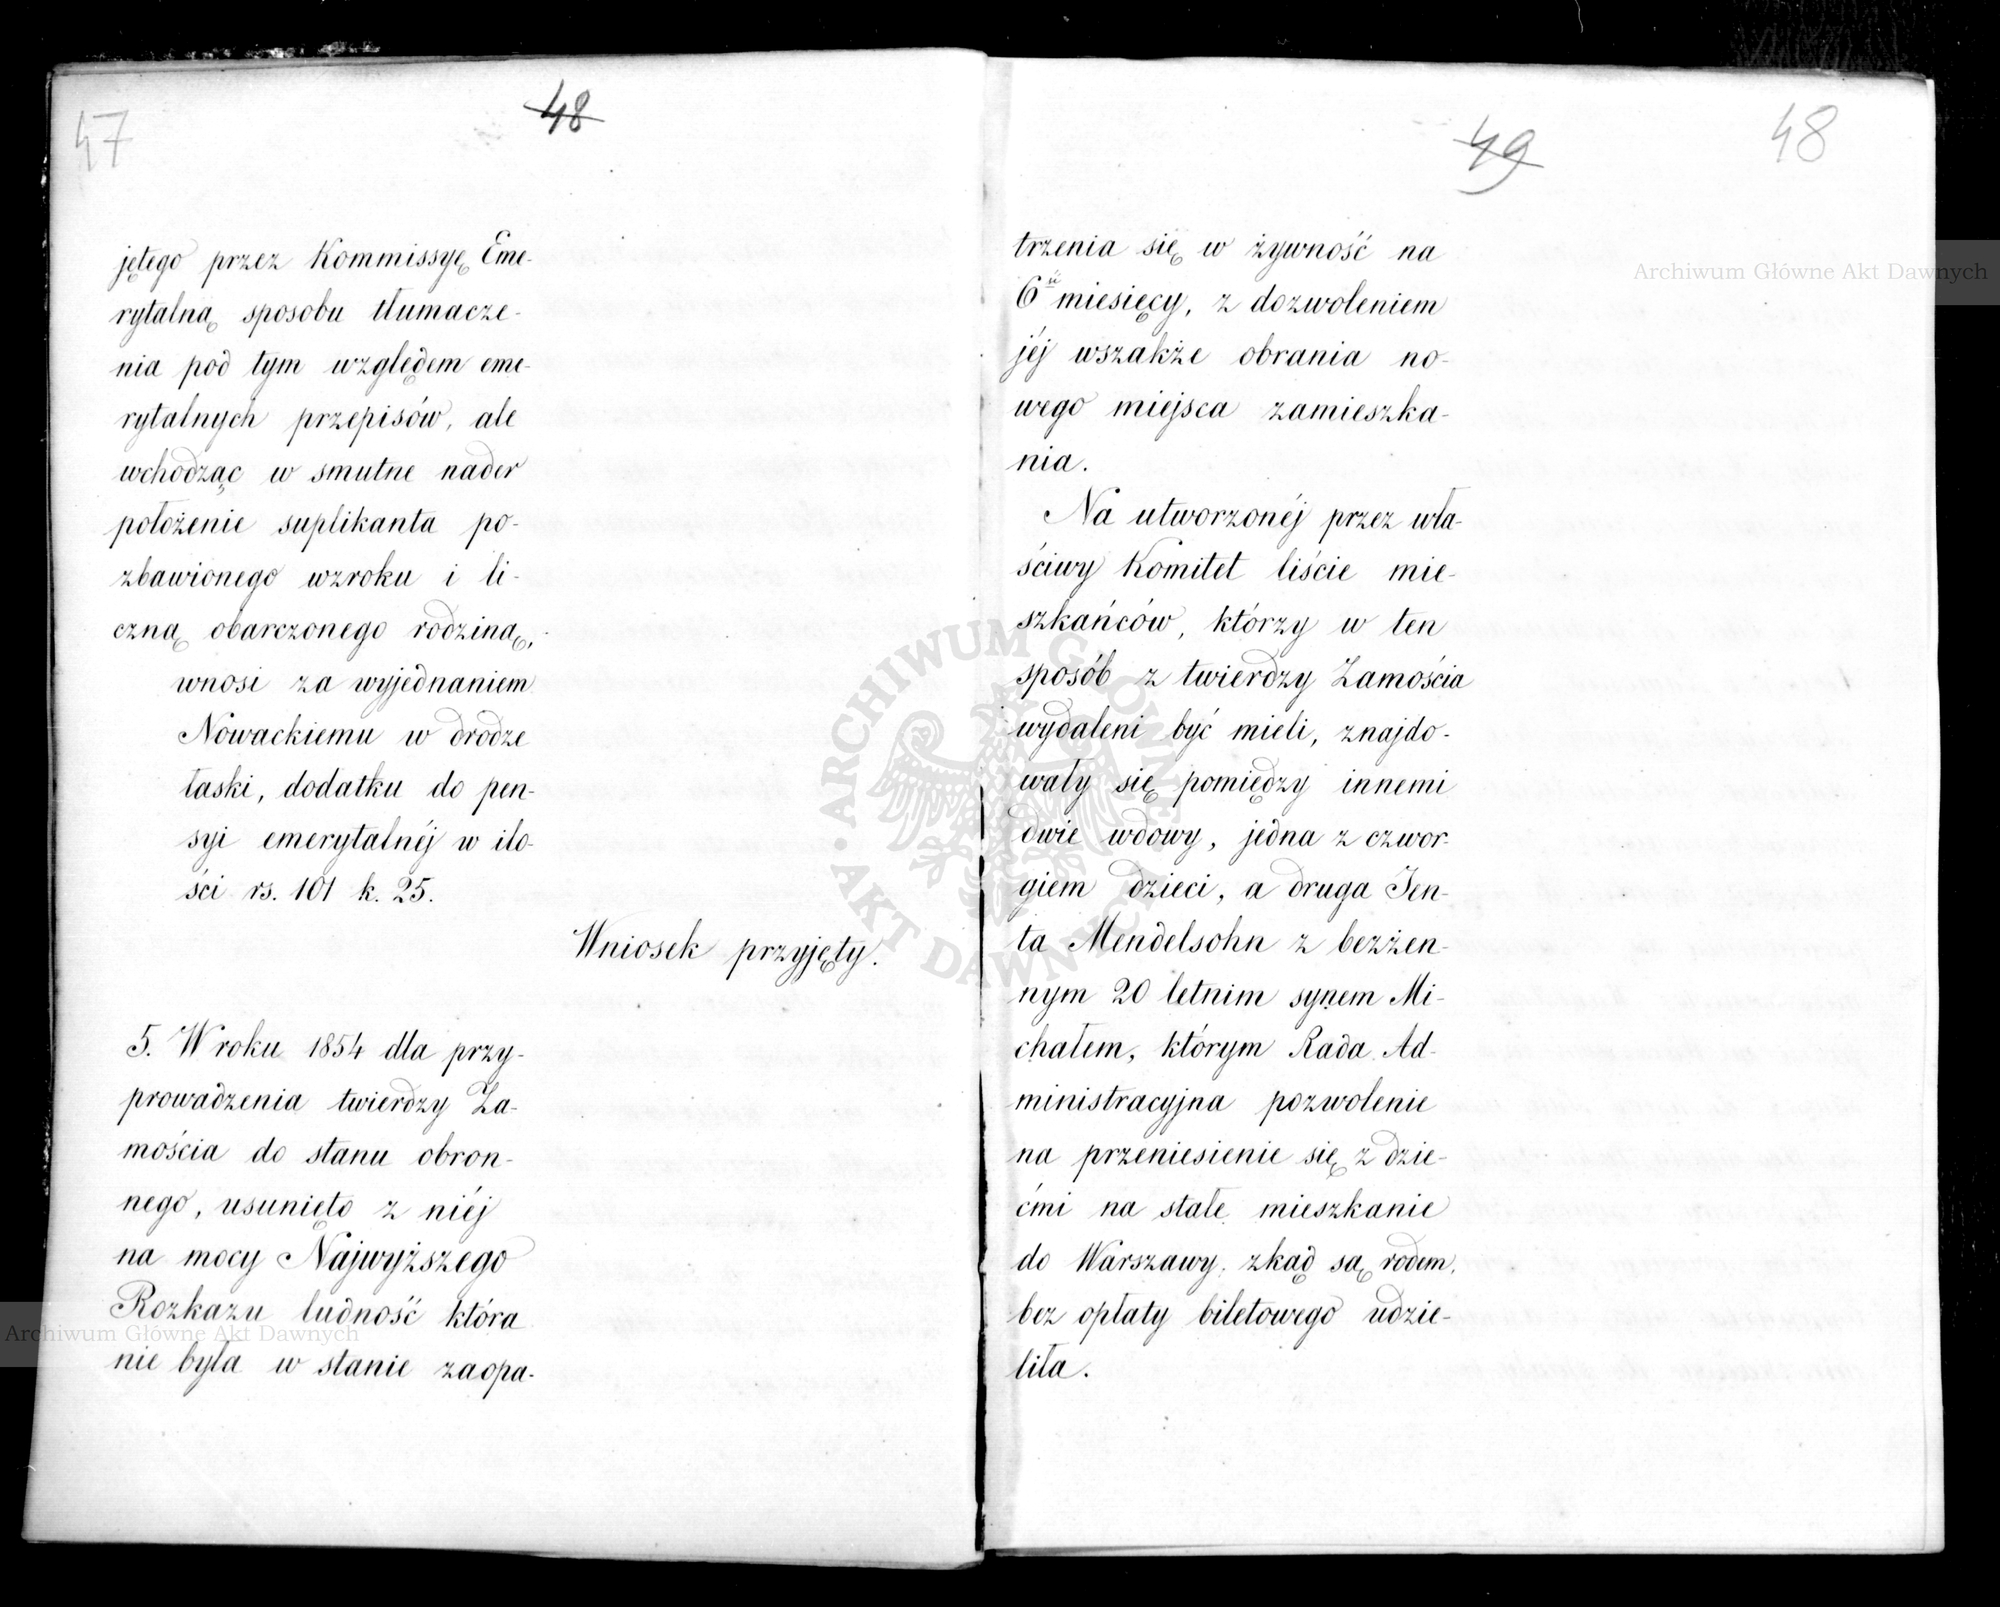 47
48
jętego przez Kommissyę Eme-
rytalną sposobu tłumacze-
nia pod tym względem eme-
rytalnych przepisów, ale
wchodząc w smutne nader
położenie suplikanta po-
zbawionego wzroku i li-
czną obarczonego rodziną,
wnosi za wyjednaniem
Nowackiemu w drodze
łaski, dodatku do pen-
syi emerytalnéj w ilo-
ści rs. 101 k. 25.
Wniosek przyjęty.
5. W roku 1854 dla przy-
prowadzenia twierdzy Za-
mościa do stanu obron-
nego, usunięto z niéj
na mocy Najwyższego
Rozkazu ludność która
nie była w stanie zaopa-
Archiwum Główne Akt Dawnych
49
48
trzenia się w żywność na
6ść miesięcy, z dozwoleniem
jéj wszakże obrania no-
wego miejsca zamieszka-
nia.
Na utworzonéj przez wła-
ściwy Komitet liście mie-
szkańców, którzy w ten
sposób z twierdzy Zamościa
wydaleni być mieli, znajdo-
wały się pomiędzy innemi
dwie wdowy, jedna z czwor-
giem dzieci, a druga Jen-
ta Mendelsohn z bezżen-
nym 20 letnim synem Mi-
chałem, którym Rada Ad-
ministracyjna pozwolenie
na przeniesienie się z dzie-
ćmi na stałe mieszkanie
do Warszawy, zkąd są rodem,
bez opłaty biletowego udzie-
liła.
Archiwum Główne Akt Dawnych
ARCHIWUM GŁÓWNE • AKT DAWNYCH •